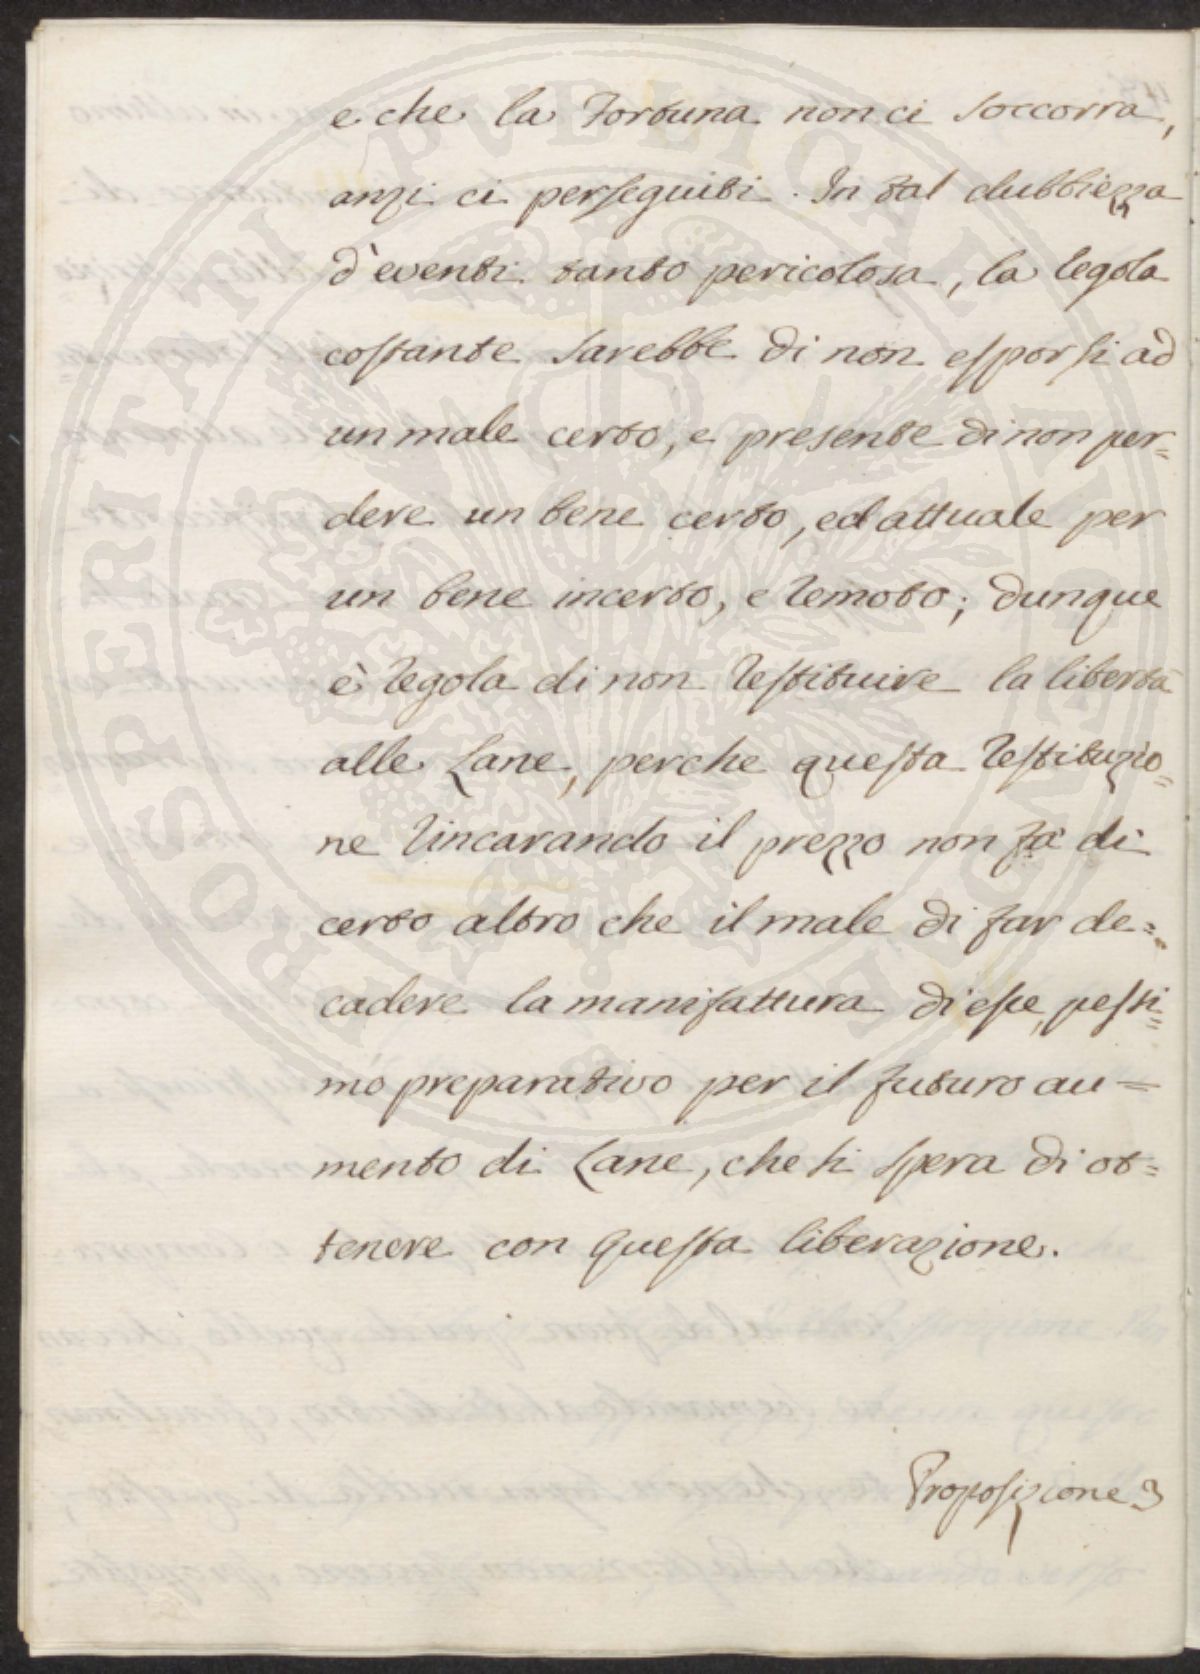 e che la Fortuna non ci soccorra,
anzi ci perseguiti. In tal dubbiezza
d'eventi tanto pericolosa, la regola
costante sarebbe di non esporsi ad
un male certo, e presente di non per=
dere un bene certo, ed attuale per
un bene incerto, e remoto; dunque
è regola di non restituire la libertà
alle Lane, perche questa restituzio=
ne rincarando il prezzo non fà di
certo altro che il male di far de=
cadere la manifattura di esse, pessi=
mo preparativo per il futuro au=
mento di Lane, che si spera di ot=
tenere con questa liberazione.
Proposizione 3
PROSPERITATI PVBLICAE AVGENDAE